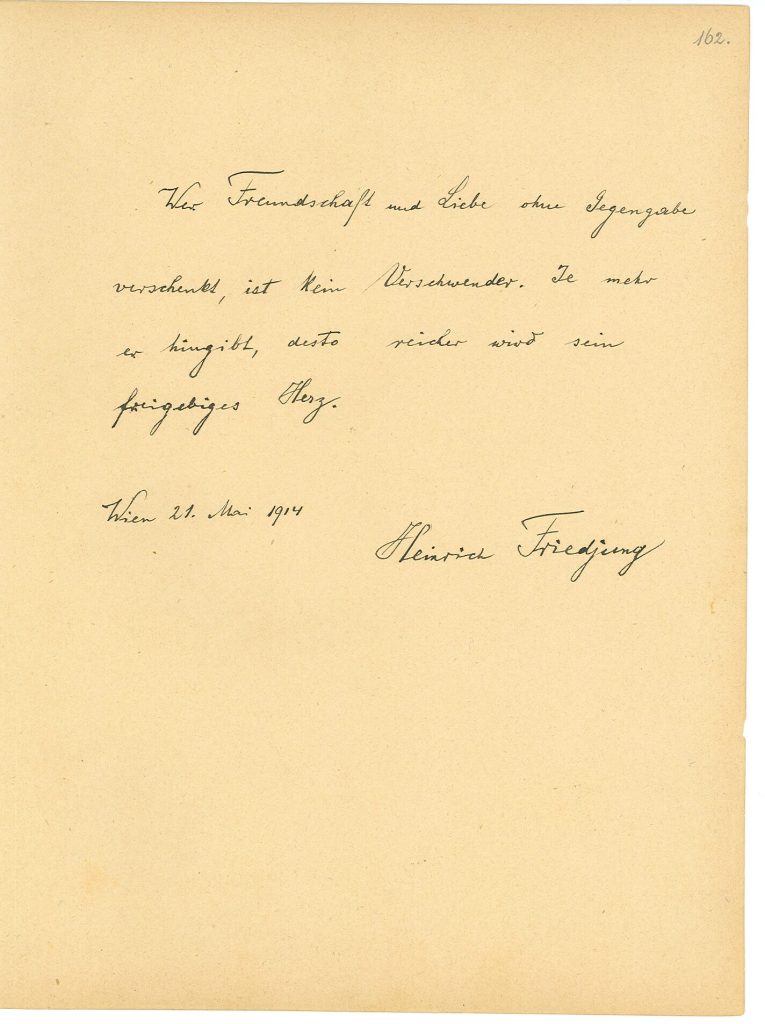 162.
Wer Freundschaft und Liebe ohne Gegengabe
verschenkt, ist kein Verschwender. Je mehr
er hingibt, desto reicher wird sein
freigebiges Herz.
Wien 21. Mai 1914
Heinrich Friedjung